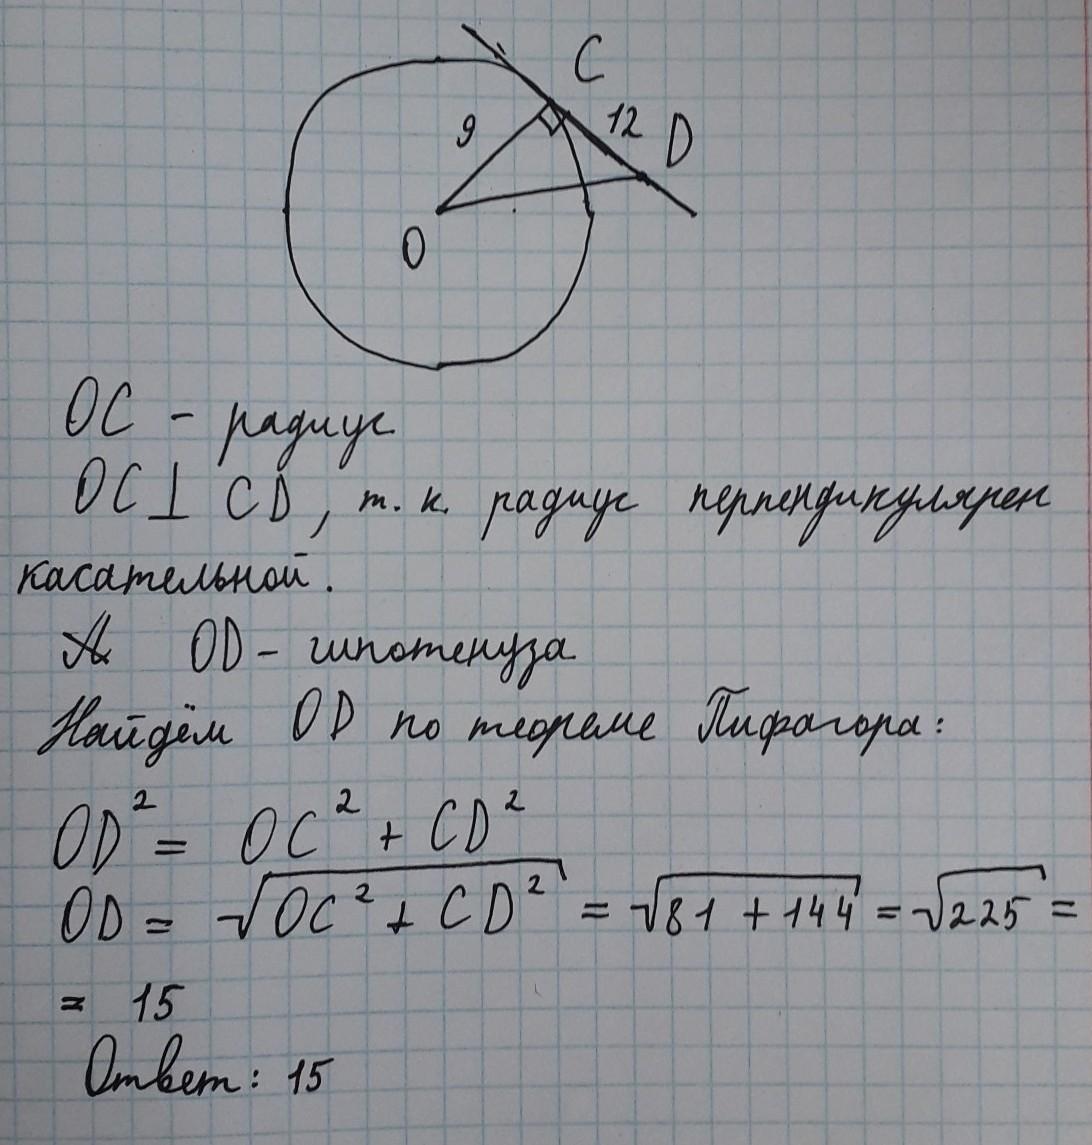 C
9
12 D
O
OC - радиус
OC ⊥ CD, т. к. радиус перпендикулярен
касательной.
OD - гипотенуза
Найдём OD по теореме Пифагора:
OD² = OC² + CD²
OD = √(OC² + CD²) = √(81 + 144) = √225 =
= 15
Ответ: 15